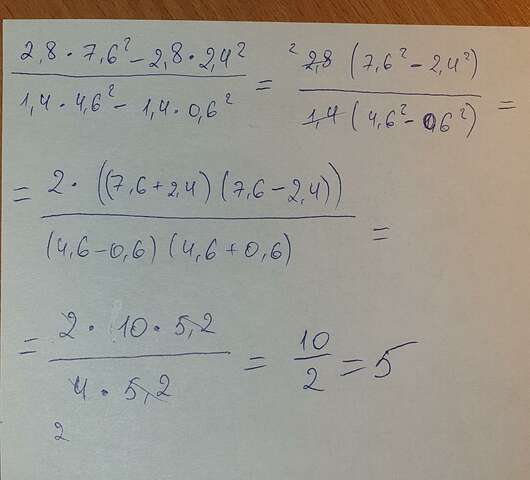 2,8 · 7,6² – 2,8 · 2,4² / 1,4 · 4,6² – 1,4 · 0,6² = ² 2,8 (7,6² – 2,4²) / 1,4 (4,6² – 0,6²) =
= 2 · ((7,6 + 2,4) (7,6 – 2,4)) / (4,6 – 0,6) (4,6 + 0,6) =
= 2 · 10 · 5,2 / 4 · 5,2 = 10 / 2 = 5
2